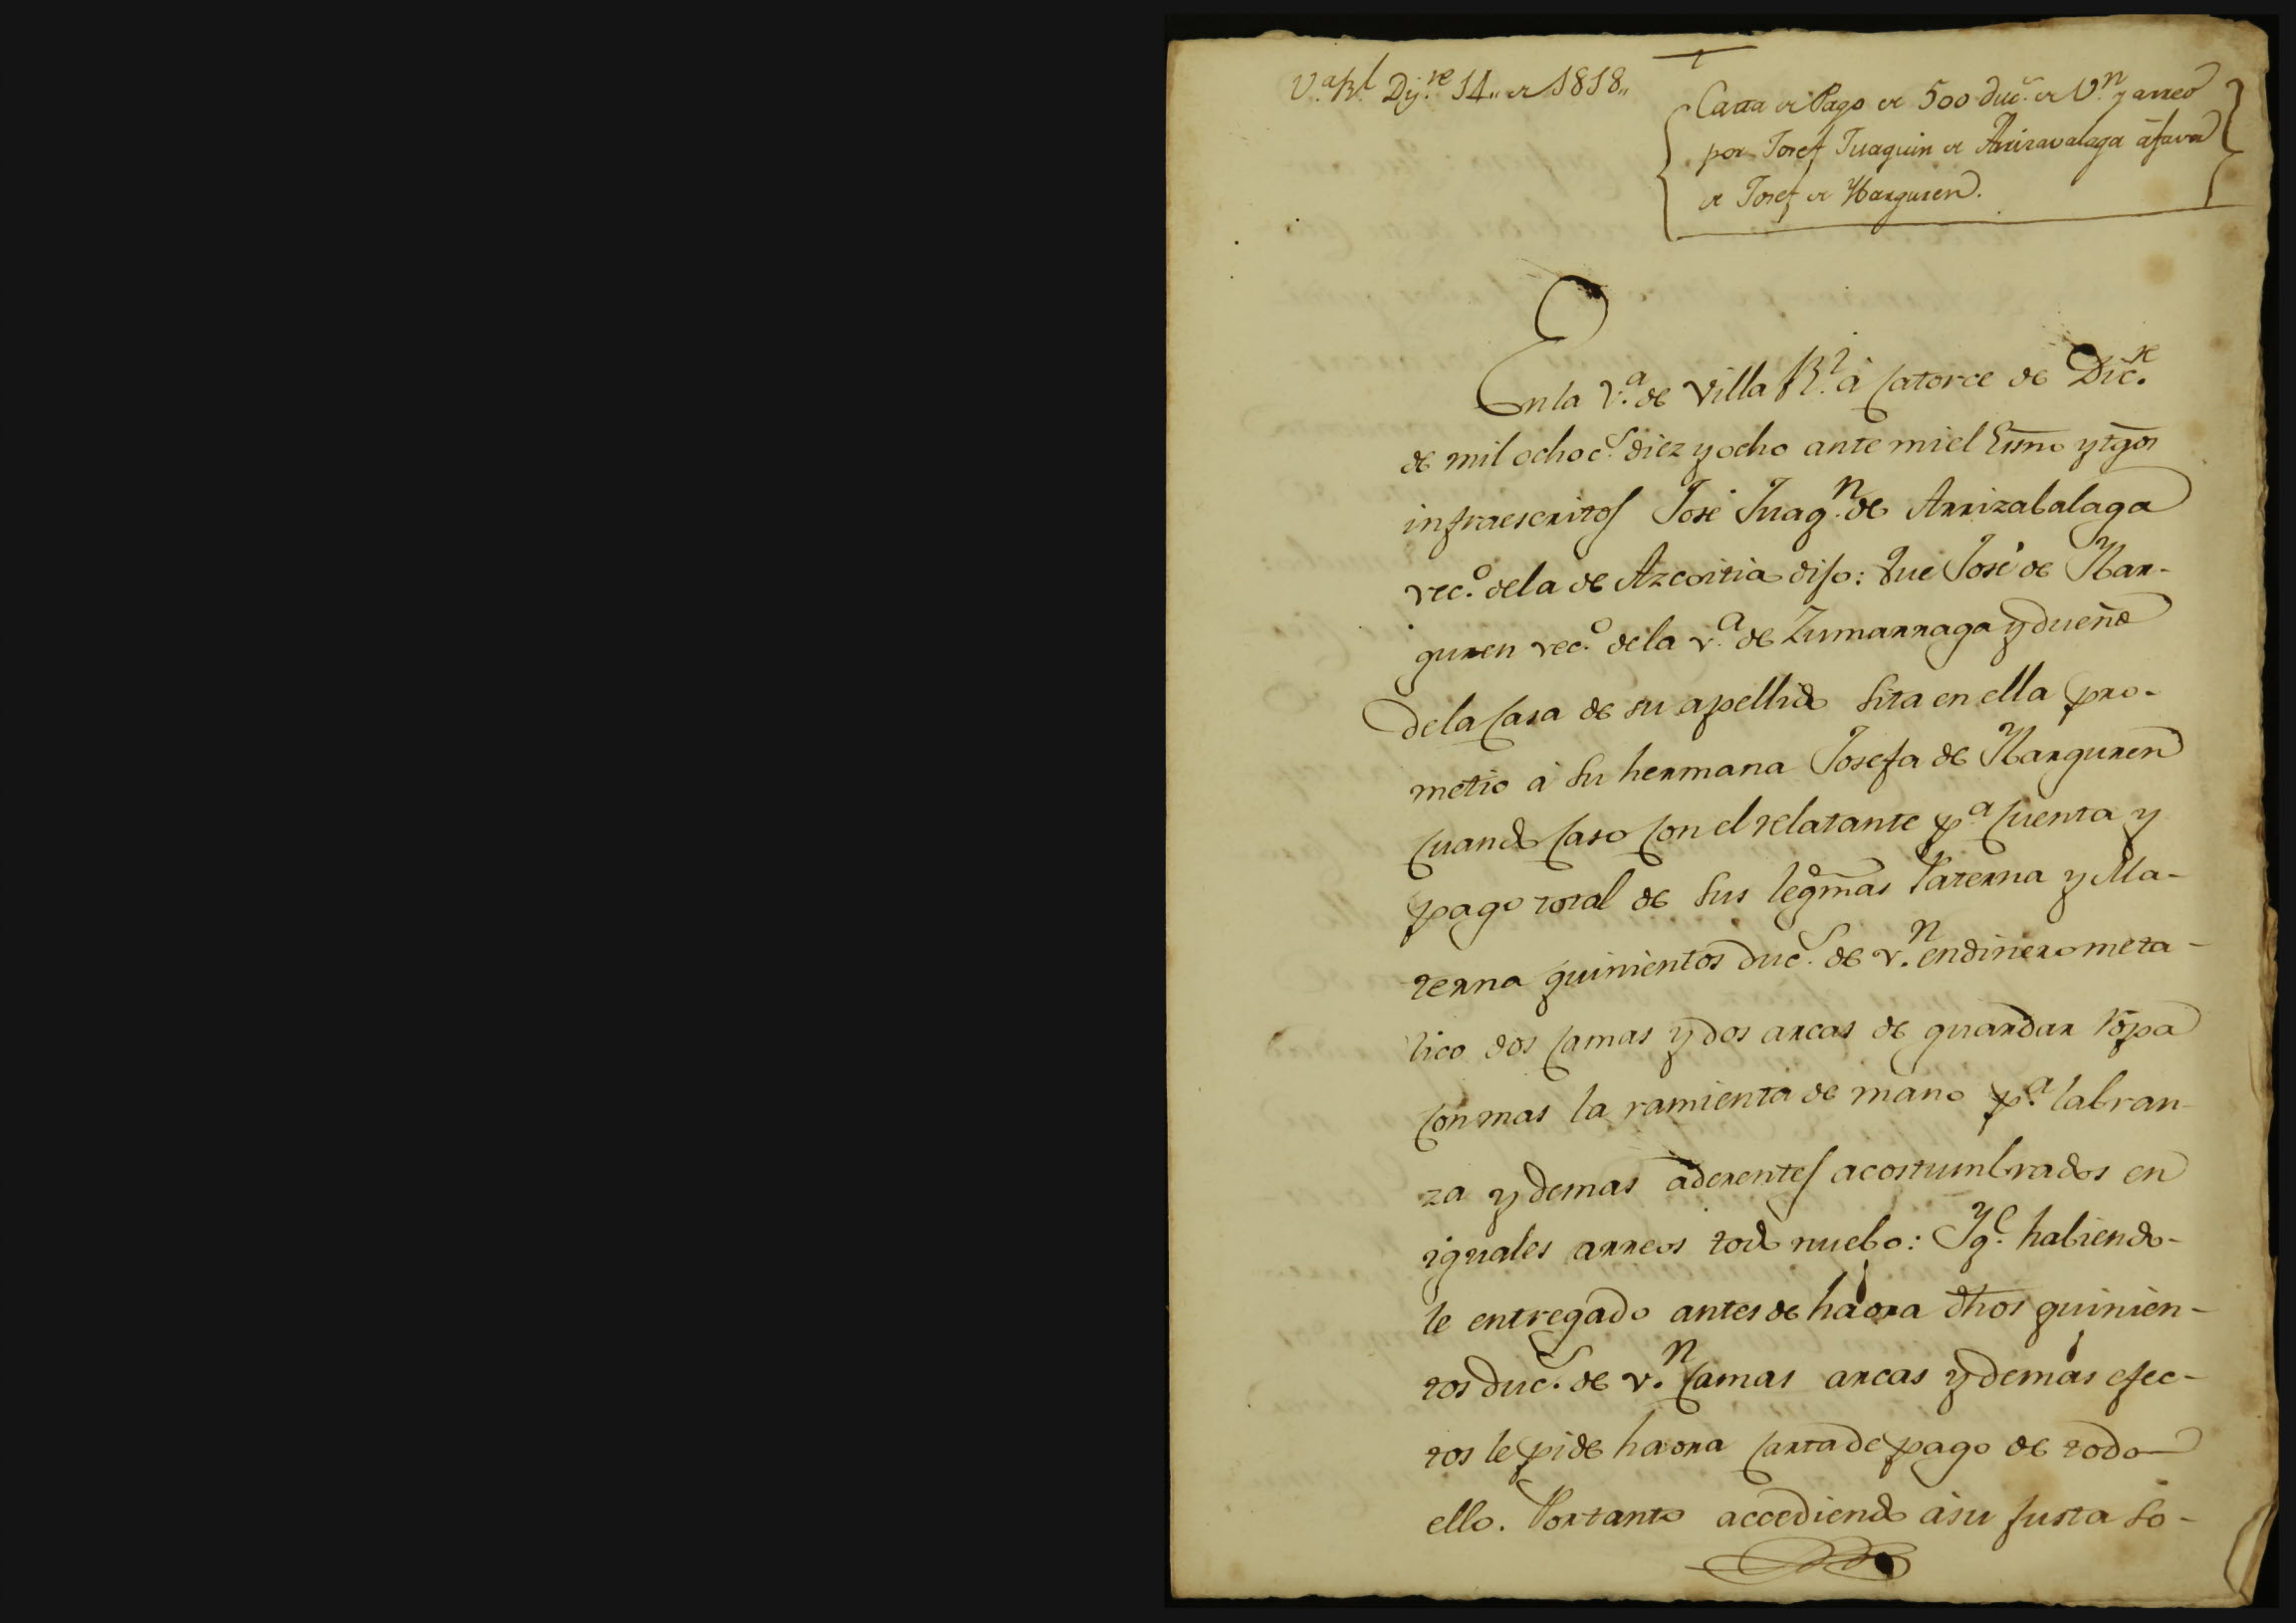 V.ª R.l Dij.re 14,, de 1818,,
Carta de Pago de 500 duc.s de V.n y arreo
por Josef Juaquin de Arrizavalaga á favor
de Josef de Ybarguren.
En la V.ª de Villa R.l á catorce de Dic.re
de mil ochoc.s diez y ocho ante mi el Essno y tgos
infraescritos José Juaq.n de Arrizabalaga
vec.o de la de Azcoitia dijo: Que José de Ybar-
guren vec.o de la v.ª de Zumarraga y dueño
de la casa de su apellido sita en ella pro-
metio á su hermana Josefa de Ybarguren
cuando caso con el relatante p.ª cuenta y
pago total de sus legmas Paterna y Ma-
terna quinientos duc.s de v.n en dinero meta-
lico dos camas y dos arcas de guardar ropa
con mas la ramienta de mano p.ª labran-
za y demas aderentes acostumbrados en
iguales arreos todo nuebo: Y q.e habiendo-
le entregado antes de haora dhos quinien-
tos duc.s de v.n camas arcas y demas efec-
tos le pide haora carta de pago de todo
ello. Por tanto accediendo á su justa so-